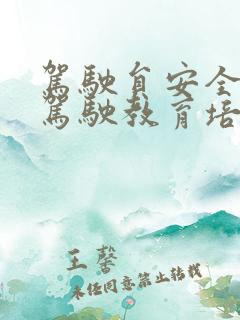 驾駛貟安全
驾駛教育培
王馨
未经同意禁止转载